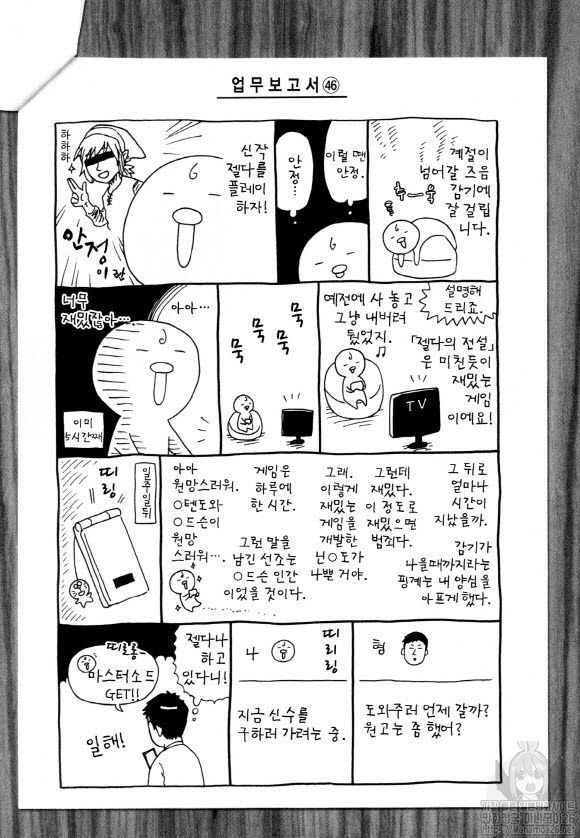 업무보고서㊻
계절이
넘어갈 즈음
감기에
잘 걸립
니다.
추―욱
이럴 땐
안정.
안정…
신작
젤다를
플레이
하자!
하
하
하
안정
이란
설명해
드리죠.
「젤다의 전설」
은 미친듯이
재밌는
게임
이에요!
예전에 사 놓고
그냥 내버려
뒀었지.
TV
묵
묵
묵
묵
아아…
너무
재밌잖아…
이미
5시간째
그 뒤로
얼마나
시간이
지났을까.
감기가
나을때까지라는
핑계는 내 양심을
아프게 했다.
그런데
재밌다.
이 정도로
재밌으면
범죄다.
그래.
이렇게
재밌는
게임을
개발한
닌○도가
나쁜 거야.
게임은
하루에
한 시간.
그런 말을
남긴 선조는
○드슨 인간
이었을 것이다.
아아
원망스러워.
○텐도와
○드슨이
원망
스러워…
일주일 뒤
띠
링
형
도와주러 언제 갈까?
원고는 좀 했어?
띠
리
링
나
지금 신수를
구하러 가려는 중.
젤다나
하고
있다니!
띠로롱―
마스터소드
GET!!
일해!